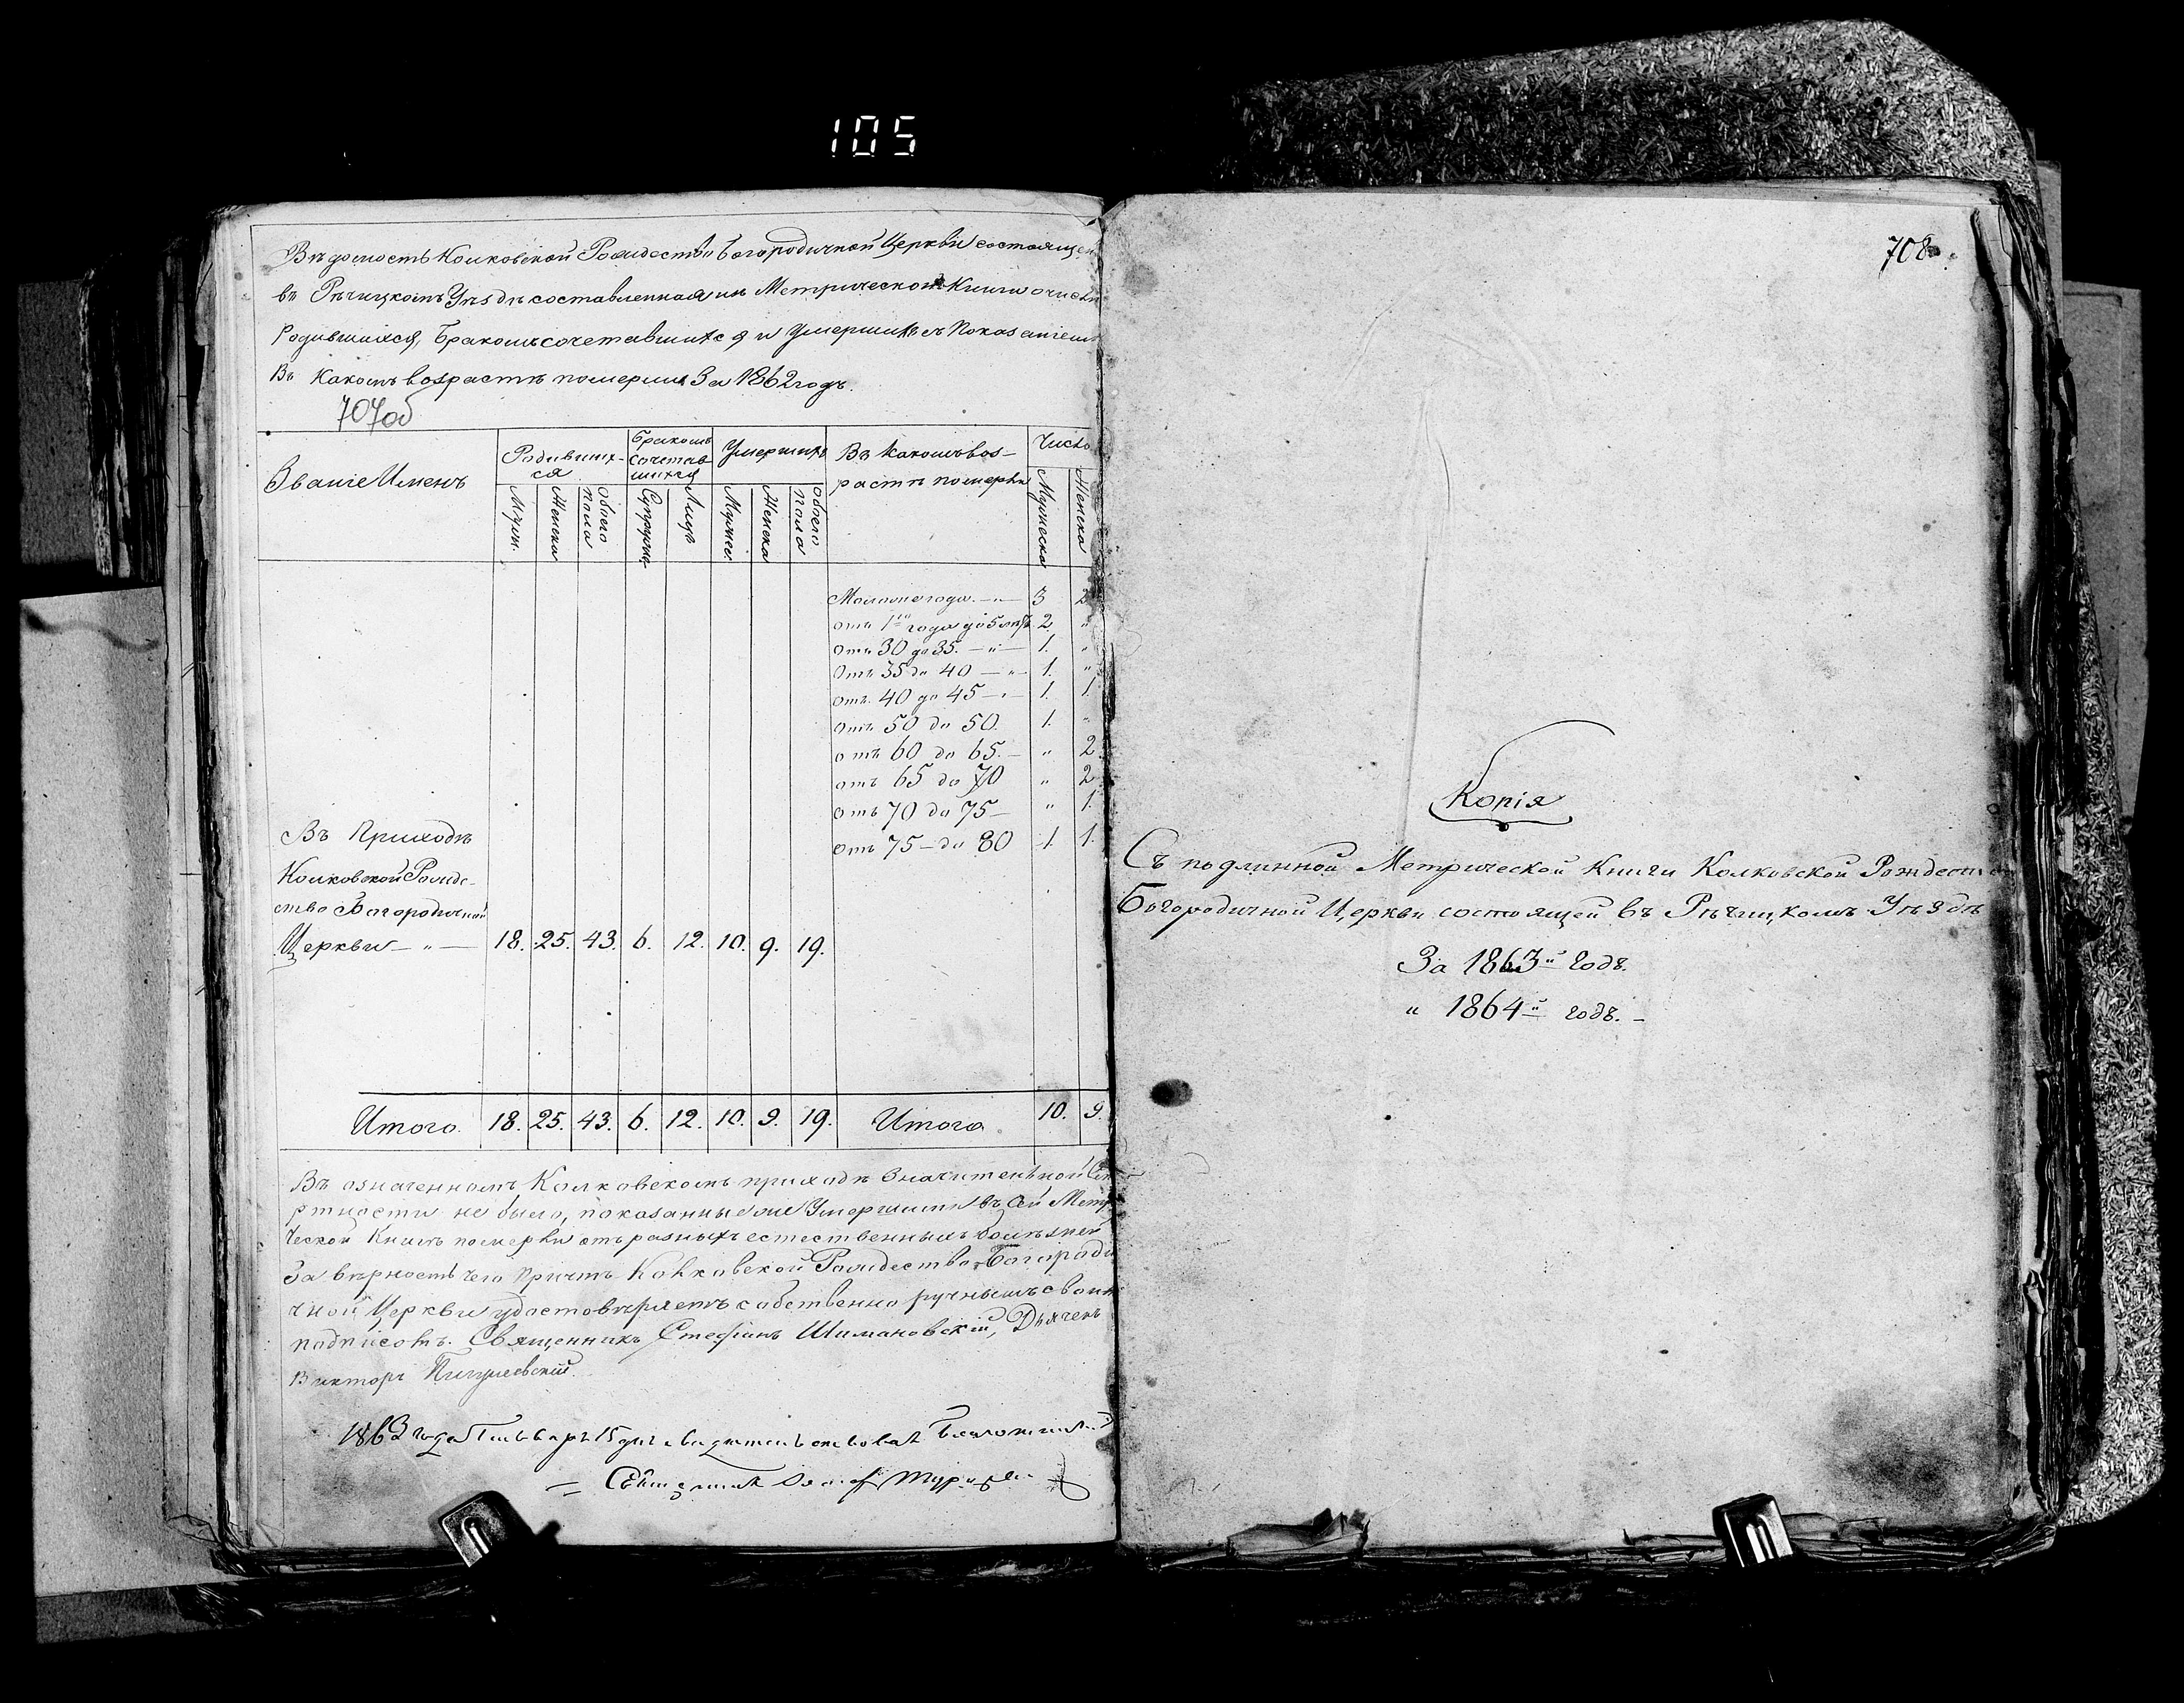 105
Вѣдомость Колковской Рождество Богородичной Церкви состоящей
въ Рѣчицкомъ Уѣздѣ составленная изъ Метрической Книги о числѣ
Родившихся, Бракомъ сочетавшихся и Умершихъ съ Показаніемъ
Въ Какомъ возрастѣ померли За 1862 годъ.
707об
Званіе Именъ
Родивших-
ся
Бракомъ
сочетав
шихся
Умершихъ
Въ Какомъ воз-
растѣ померли
Число
Муж.
Женска
обоего
пола
Супруж
Лицъ
Мужес.
Женска
обоего
пола
Мужеска
Женска
Моложе года. — „ — 3 2
отъ 1го года до 5 лѣтъ 2. „
отъ 30 до 35. — „ — 1. „
отъ 35 до 40 — „ — 1. „
отъ. 40 до 45 — „ — 1. 1.
отъ 50 до 50. 1. „
отъ 60 до 65. — „ 2.
отъ 65 до 70 „ 2
отъ 70 до 75 — „ 1.
отъ 75 — до 80 1. 1.
Въ Приходѣ
Колковской Рожде-
ство Богородичной
Церкви — „ — 18. 25. 43. 6. 12. 10. 9. 19.
Итого. 18. 25. 43. 6. 12. 10. 9. 19. Итого 10. 9.
Въ означенномъ Колковскомъ приходѣ Значительной Сме
ртности не было, показанные же Умершими въ сей Метри
ческой Книгѣ померли отъ разныхъ естественныхъ болѣзней
За вѣрность чего Причтъ Колковской Рождество-Богороди
чной Церкви удостовѣряетъ собственно ручнымъ своимъ
подписомъ. Священникъ Стефанъ Шимановскій, Дьячекъ
Викторъ Пигулевскій.
1863 года Генваря 15 дня свидѣтельствовалъ Благочинный
Священникъ
708
Копія
Съ подлинной Метрической Книги Колковской Рождество
Богородичной Церкви состоящей въ Рѣчицкомъ Уѣздѣ
За 1863й годъ.
„ 1864й годъ. —